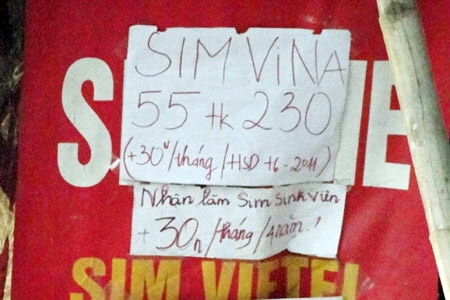 SIM VINA
55 tk 230
(+30n/tháng/HSD t6-2011)
Nhận làm Sim Sinh Viên
+30n/tháng/4 năm!
SIM VIETEL